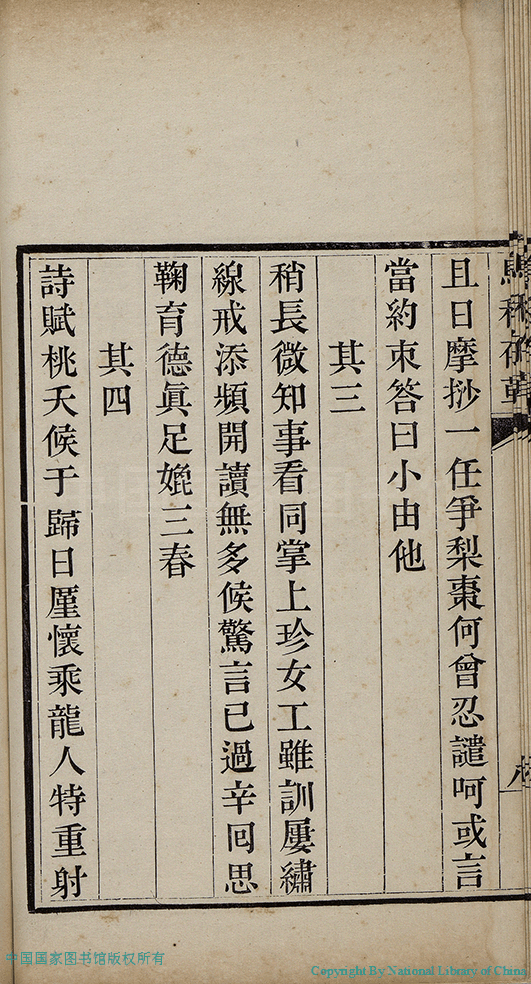 且日摩挱一任爭梨棗何曾忍譴呵或言
當約束答曰小由他
其三
稍長微知事看同掌上珍女工雖訓屢繡
線戒添頻開讀無多候驚言已過辛囘思
鞠育德眞足嬔三春
其四
詩賦桃夭候于歸日厪懷乘龍人特重射
中国国家图书馆版权所有
Copyright By National Library of China